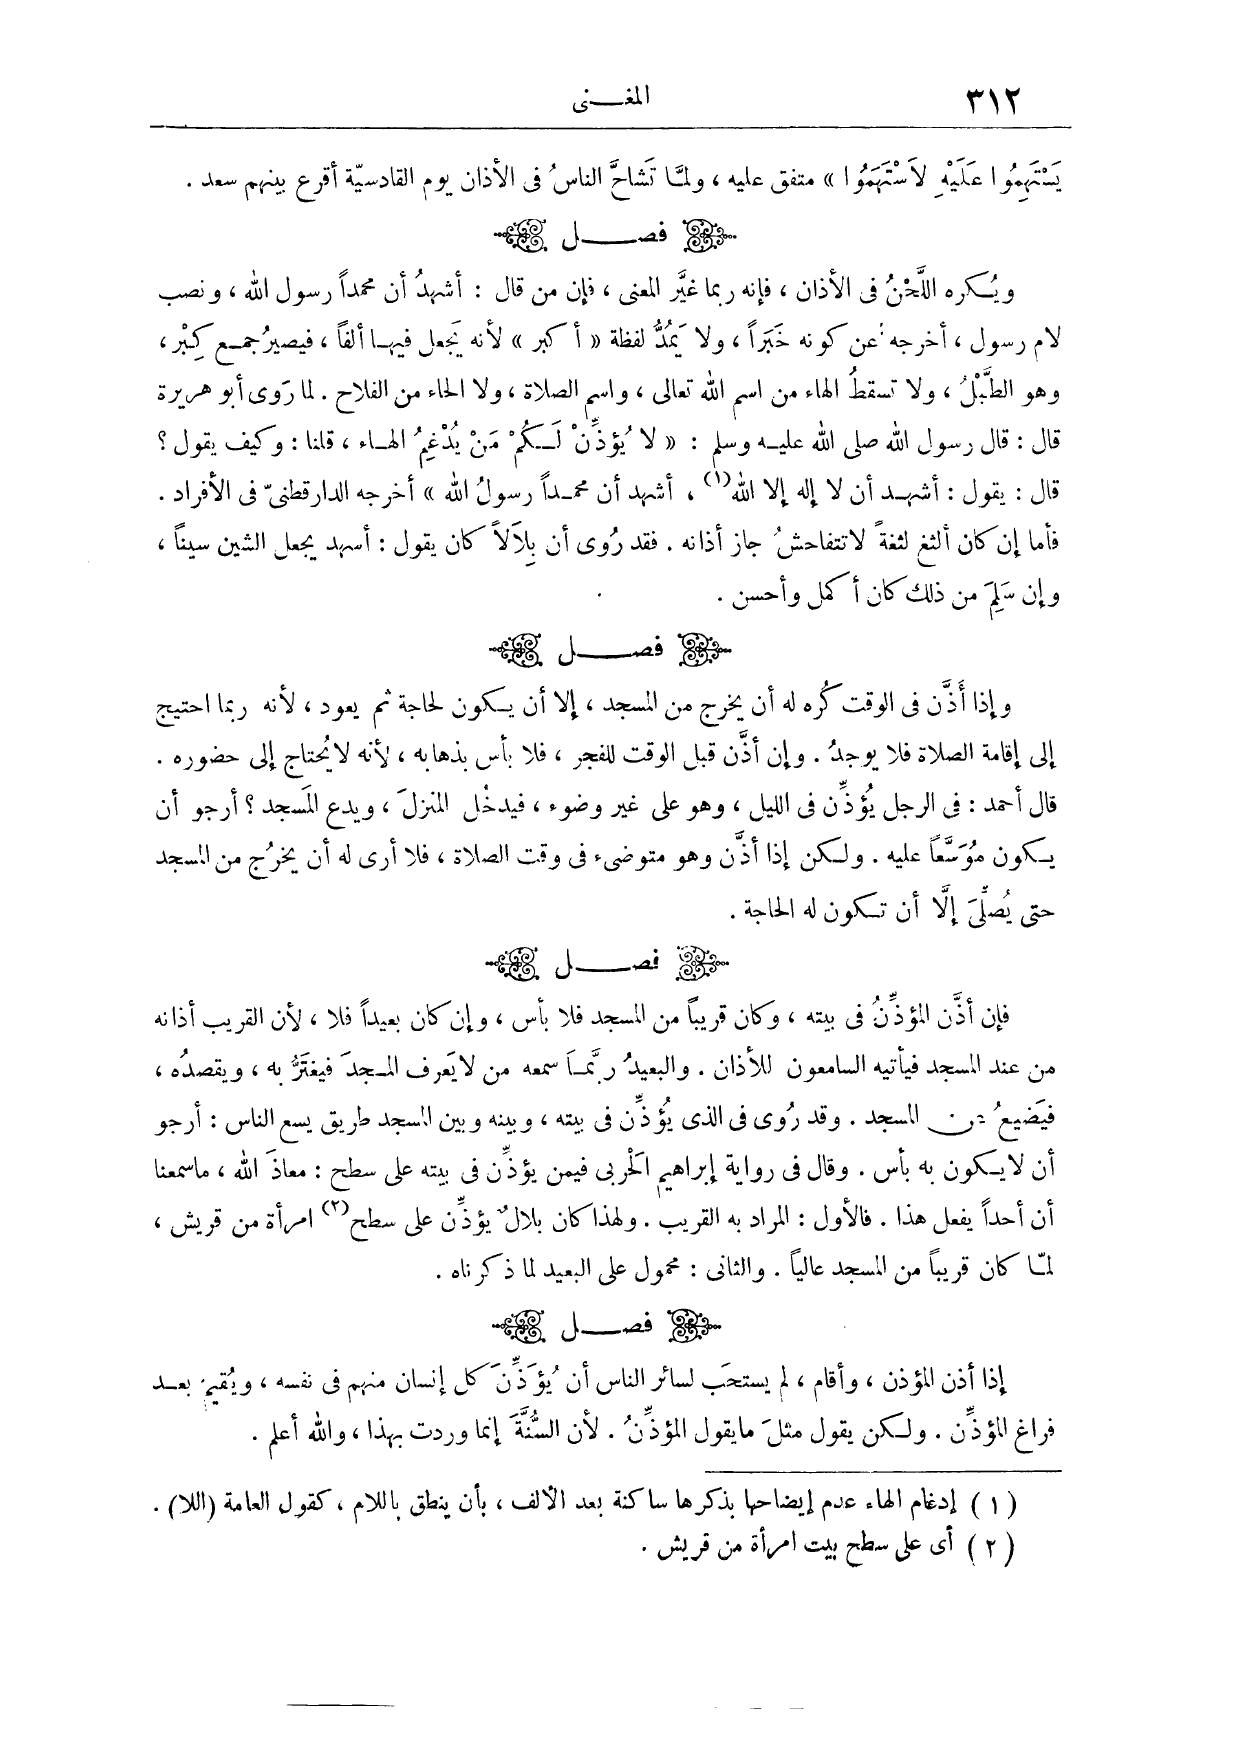 ٣١٢
المغــنى
يَسْتَهِمُوا عَلَيْهِ لاَسْتَهَمُوا » متفق عليه ، ولمَّا تَشَاحَّ الناسُ فى الأذان يوم القادسيّة أقرع بينهم سعد .
فصــل
ويُكره اللَّحْنُ فى الأذان ، فإنه ربما غيَّر المعنى ، فإن من قال : أشهدُ أن محمداً رسول الله ، ونصب
لام رسول ، أخرجه عن كونه خَبَراً ، ولا يَمُدُّ لفظة « أكبر » لأنه يَجعل فيها ألفاً ، فيصيرُ جمع كِبْر ،
وهو الطَّبْلُ ، ولا تسقطُ الهاء من اسم الله تعالى ، واسم الصلاة ، ولا الحاء من الفلاح . لما رَوى أبو هريرة
قال : قال رسول الله صلى الله عليه وسلم : « لا يُؤذِّنْ لَكُمْ مَنْ يُدْغِمُ الهاء ، قلنا : وكيف يقول ؟
قال : يقول : أشهد أن لا إله إلا الله(١) ، أشهد أن محمداً رسولُ الله » أخرجه الدارقطنىّ فى الأفراد .
فأما إن كان ألثغ لثغةً لا تتفاحشُ جاز أذانه . فقد رُوى أن بِلاَلاً كان يقول : أسهد يجعل الشين سيناً ،
وإن سَلِمَ من ذلك كان أكمل وأحسن .
فصــل
وإذا أَذَّن فى الوقت كُره له أن يخرج من المسجد ، إلا أن يكون لحاجة ثم يعود ، لأنه ربما احتيج
إلى إقامة الصلاة فلا يوجدُ . وإن أذَّن قبل الوقت للفجر ، فلا بأس بذهابه ، لأنه لا يُحتاج إلى حضوره .
قال أحمد : فى الرجل يُؤذِّن فى الليل ، وهو على غير وضوء ، فيدخُل المنزلَ ، ويدع المَسجد ؟ أرجو أن
يكون مُوَسَّعاً عليه . ولكن إذا أذَّن وهو متوضىء فى وقت الصلاة ، فلا أرى له أن يخرُج من المسجد
حتى يُصلِّىَ إلَّا أن تكون له الحاجة .
فصــل
فإن أذَّن المؤذِّنُ فى بيته ، وكان قريباً من المسجد فلا بأس ، وإن كان بعيداً فلا ، لأن القريب أذانه
من عند المسجد فيأتيه السامعون للأذان . والبعيدُ ربَّما سمعه من لا يَعرف المسجدَ فيغترُّ به ، ويقصدُه ،
فيَضيعُ عن المسجد . وقد رُوى فى الذى يُؤذِّن فى بيته ، وبينه وبين المسجد طريق يسع الناس : أرجو
أن لا يكون به بأس . وقال فى رواية إبراهيم الحَربى فيمن يؤذِّن فى بيته على سطح : معاذَ الله ، ماسمعنا
أن أحداً يفعل هذا . فالأول : المراد به القريب . ولهذا كان بلالٌ يؤذِّن على سطح(٢) امرأة من قريش ،
لمّا كان قريباً من المسجد عالياً . والثانى : محمول على البعيد لما ذكرناه .
فصــل
إذا أذن المؤذن ، وأقام ، لم يستحَب لسائر الناس أن يُؤَذِّنَ كل إنسان منهم فى نفسه ، ويُقيم بعد
فراغ المؤذِّن . ولكن يقول مثلَ مايقول المؤذِّنُ . لأن السُّنَّةَ إنما وردت بهذا ، والله أعلم .
( ١ ) إدغام الهاء عدم إيضاحها بذكرها ساكنة بعد الألف ، بأن ينطق باللام ، كقول العامة (اللا) .
( ٢ ) أى على سطح بيت امرأة من قريش .